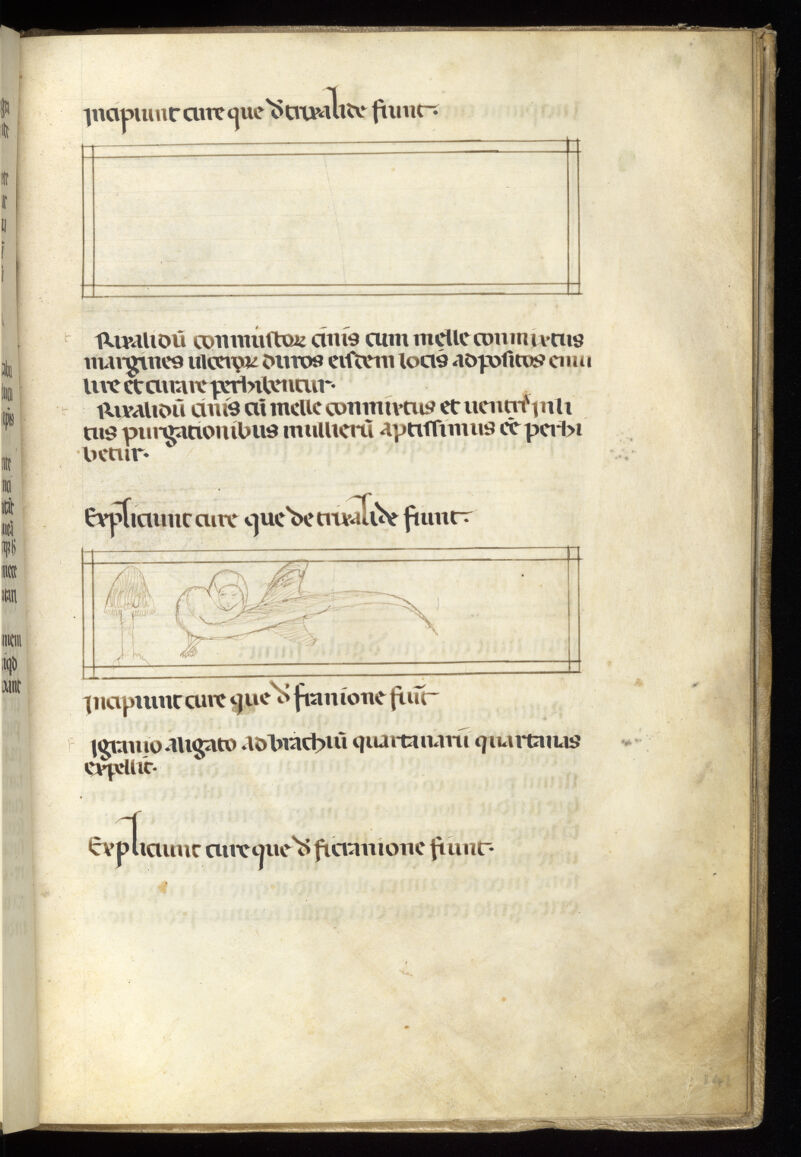 Incipiunt cure que đ trixalide fiunt.
Rixalidū conmustoꝝ cinis cum melle conmixtus
margines ulceꝝ duros eisdem locis adpositos emol
lire et curare perhibentur.
Rixalidū cinis cū melle conmixtus et uentri inli
tus purgationibus mullierū aptissimus eē perhi
betur.
Expliciunt cure que de trixalide fiunt.
Incipiunt cure que đ franione fiūt
aligato ad brachiū quartanarū quartanas
expellit.
Expliciunt cure que đ fiunt.
141